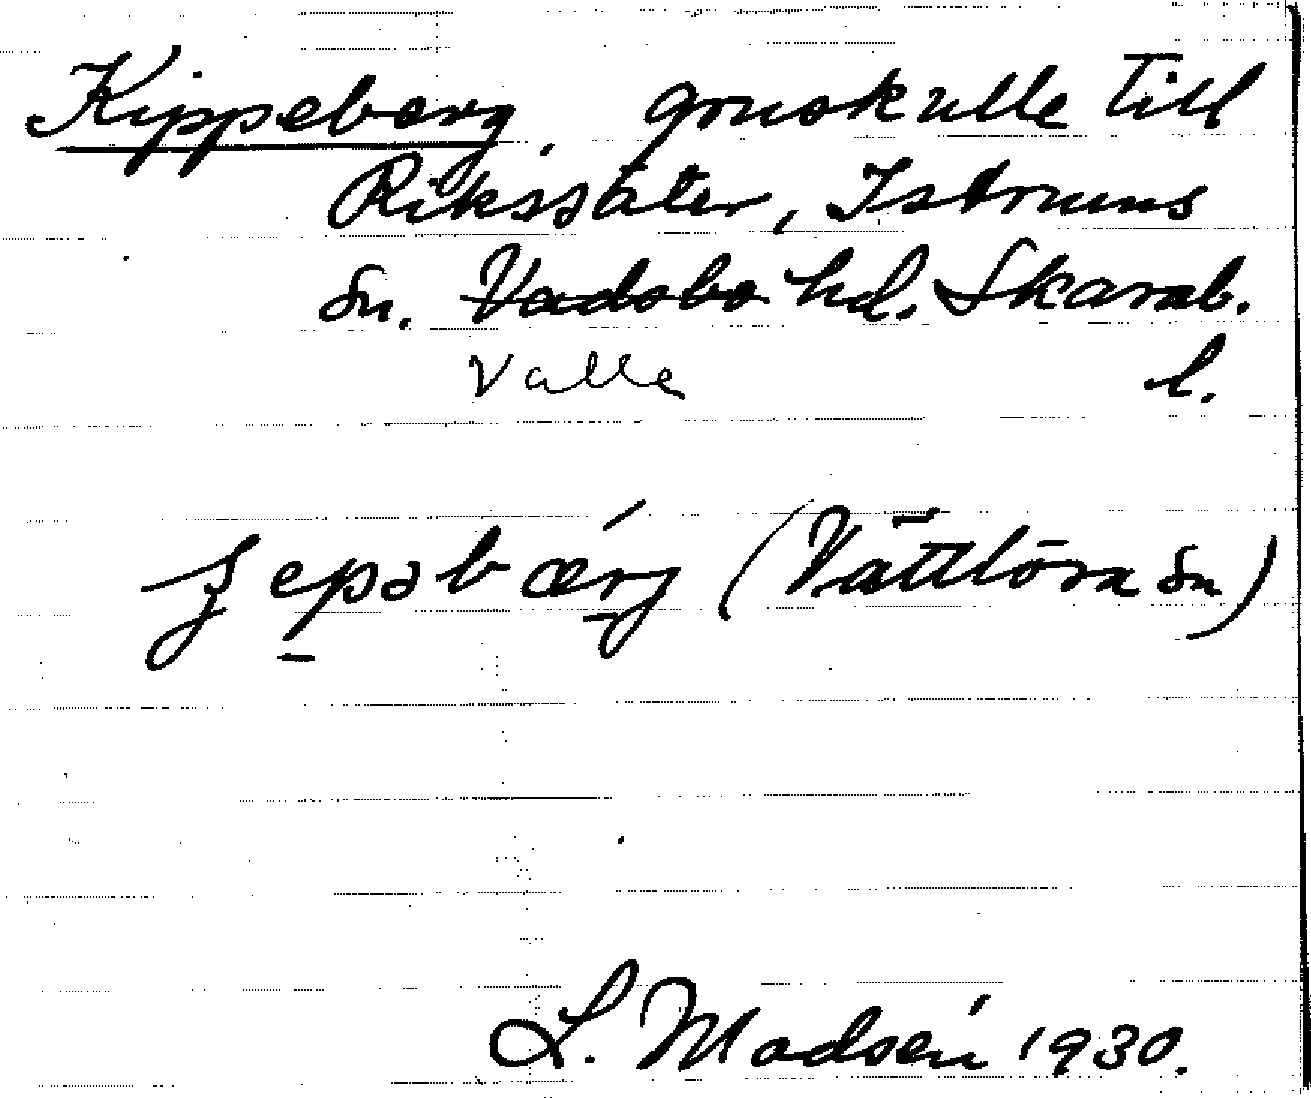 Kippeberg, gruskulle till
Rikssäter, Istrums
sn. Vadsbo hd. Skarab.
Valle l.
(Vättlösa sn)
L. Madsén 1930.